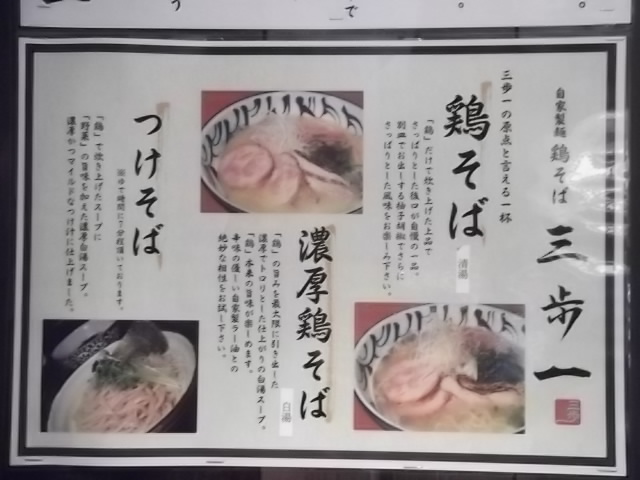 う
で
。
。
自家製麺 鶏そば
三歩一
三歩一
三歩一の原点と言える一杯
鶏そば
清湯
「鶏」だけで炊き上げた上品で
さっぱりとした後口が自慢の一品。
別皿でお出しする柚子胡椒でさらに
さっぱりとした風味をお楽しみ下さい。
濃厚鶏そば
白湯
「鶏」の旨みを最大限に引き出した
濃厚でトロリとした仕上がりの白湯スープ。
「鶏」本来の旨味が楽しめます。
辛味の優しい自家製ラー油との
絶妙な相性をお試し下さい。
つけそば
※ゆで時間に7分程頂いております。
「鶏」で炊き上げたスープに
「野菜」の旨味を加えた濃厚白湯スープ。
濃厚かつマイルドなつけ汁に仕上げました。